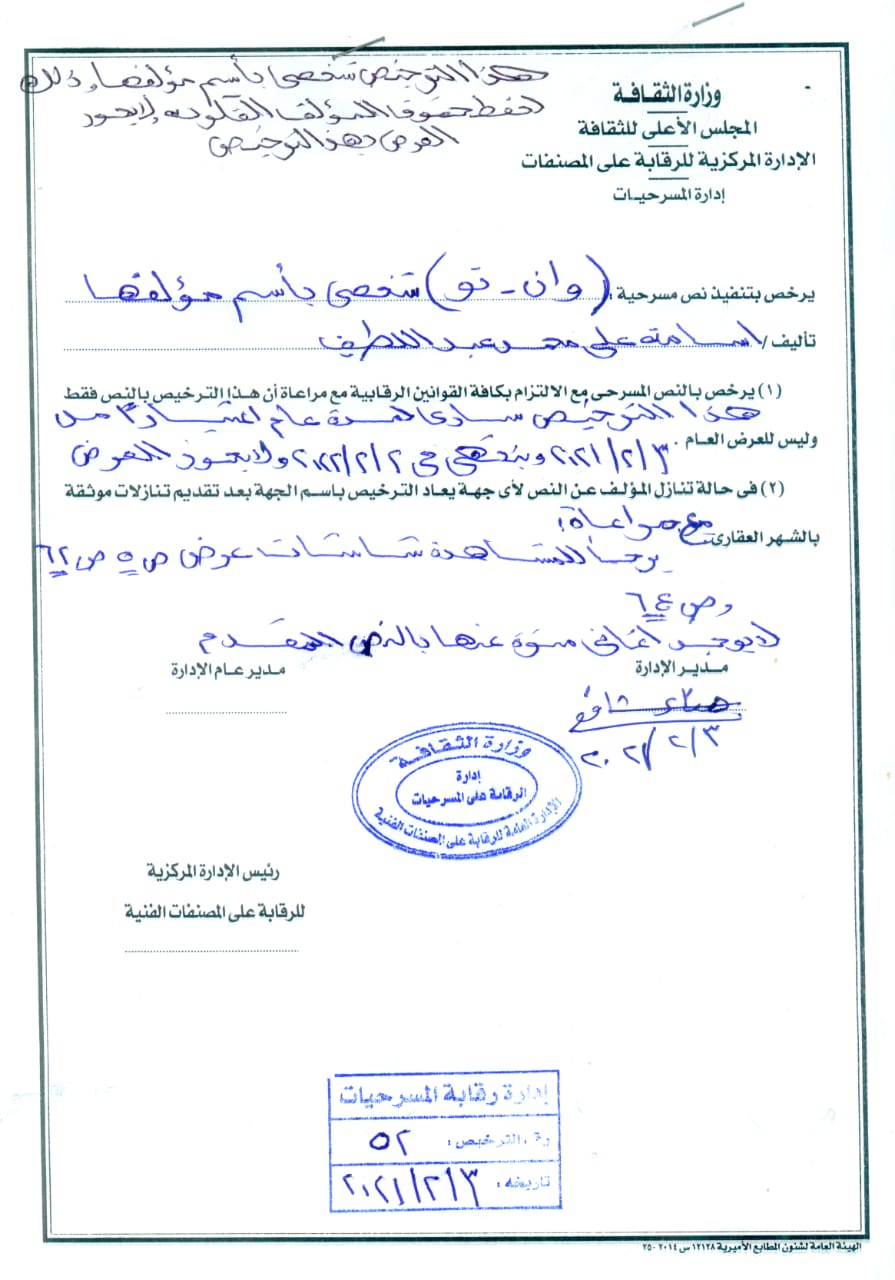 هذا الترخيص شخصى بأسم مؤلفها وذلك
لحفظ حقوق المؤلف القانونيه ولا يجوز
العرض بهذا الترخيص
وزارة الثقافة
المجلس الأعلى للثقافة
الإدارة المركزية للرقابة على المصنفات
إدارة المسرحيات
يرخص بتنفيذ نص مسرحية : (وان - تو) شخصى بأسم مؤلفها
تأليف / اسامة على محمد عبد اللطيف
(١) يرخص بالنص المسرحى مع الالتزام بكافة القوانين الرقابية مع مراعاة أن هذا الترخيص بالنص فقط
هذا الترخيص سارى لمدة عام اعتبارًا من
وليس للعرض العام . ٢٠٢١/٢/٣ وينتهى فى ٢٠٢٢/٢/٢ ولا يجوز العرض
(٢) فى حالة تنازل المؤلف عن النص لأى جهة يعاد الترخيص باسم الجهة بعد تقديم تنازلات موثقة
بالشهر العقارى مع مراعاة :
يرجأ للمشاهدة شاشات عرض ص ٥ ص ٦٢
وص ٦٤
لا يوجد أغانى منوه عنها بالنص المقدم
مدير الإدارة
مدير عام الإدارة
٢٠٢١/٢/٣
وزارة الثقافة
إدارة
الرقابة على المسرحيات
الإدارة العامة للرقابة على المصنفات الفنية
رئيس الإدارة المركزية
للرقابة على المصنفات الفنية
إدارة رقابة المسرحيات
رقم الترخيص : ٥٢
تاريخه : ٢٠٢١/٢/٣
الهيئة العامة لشئون المطابع الأميرية ١٢١٢٨ س ٢٠١٤ - ٢٥٠